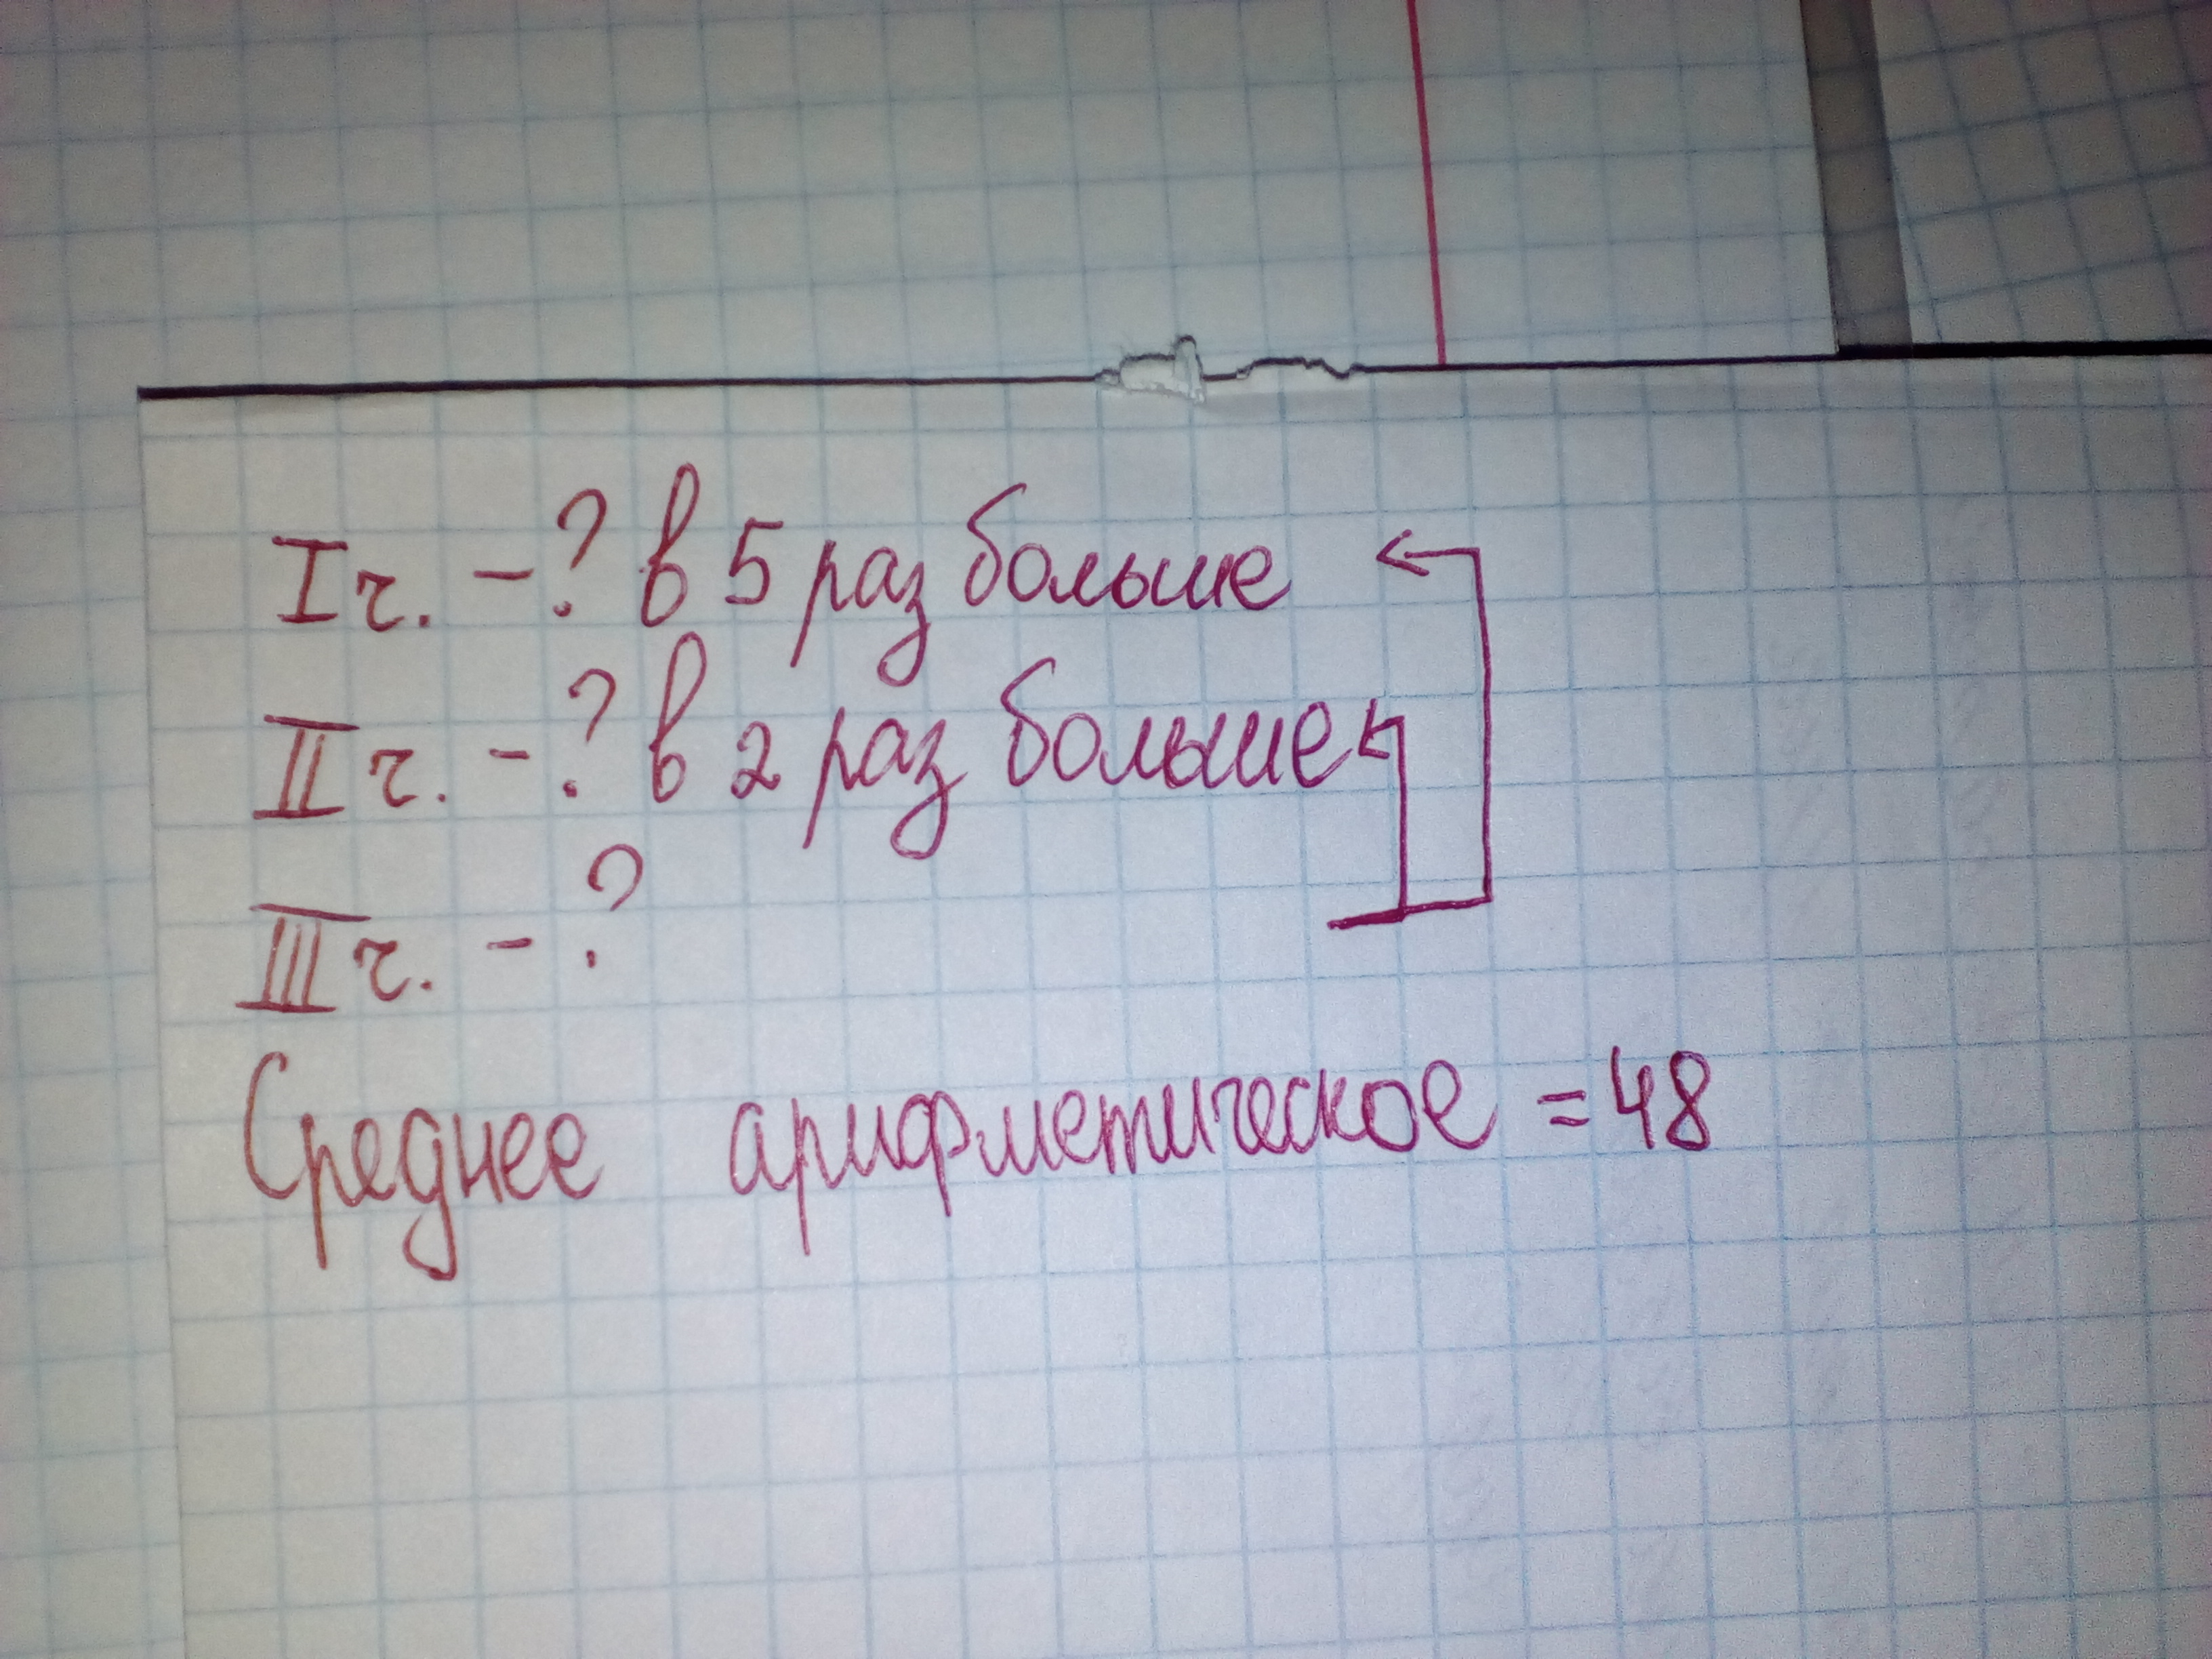 I ч. - ? в 5 раз больше
II ч. - ? в 2 раз больше
III ч. - ?
Среднее арифметическое = 48